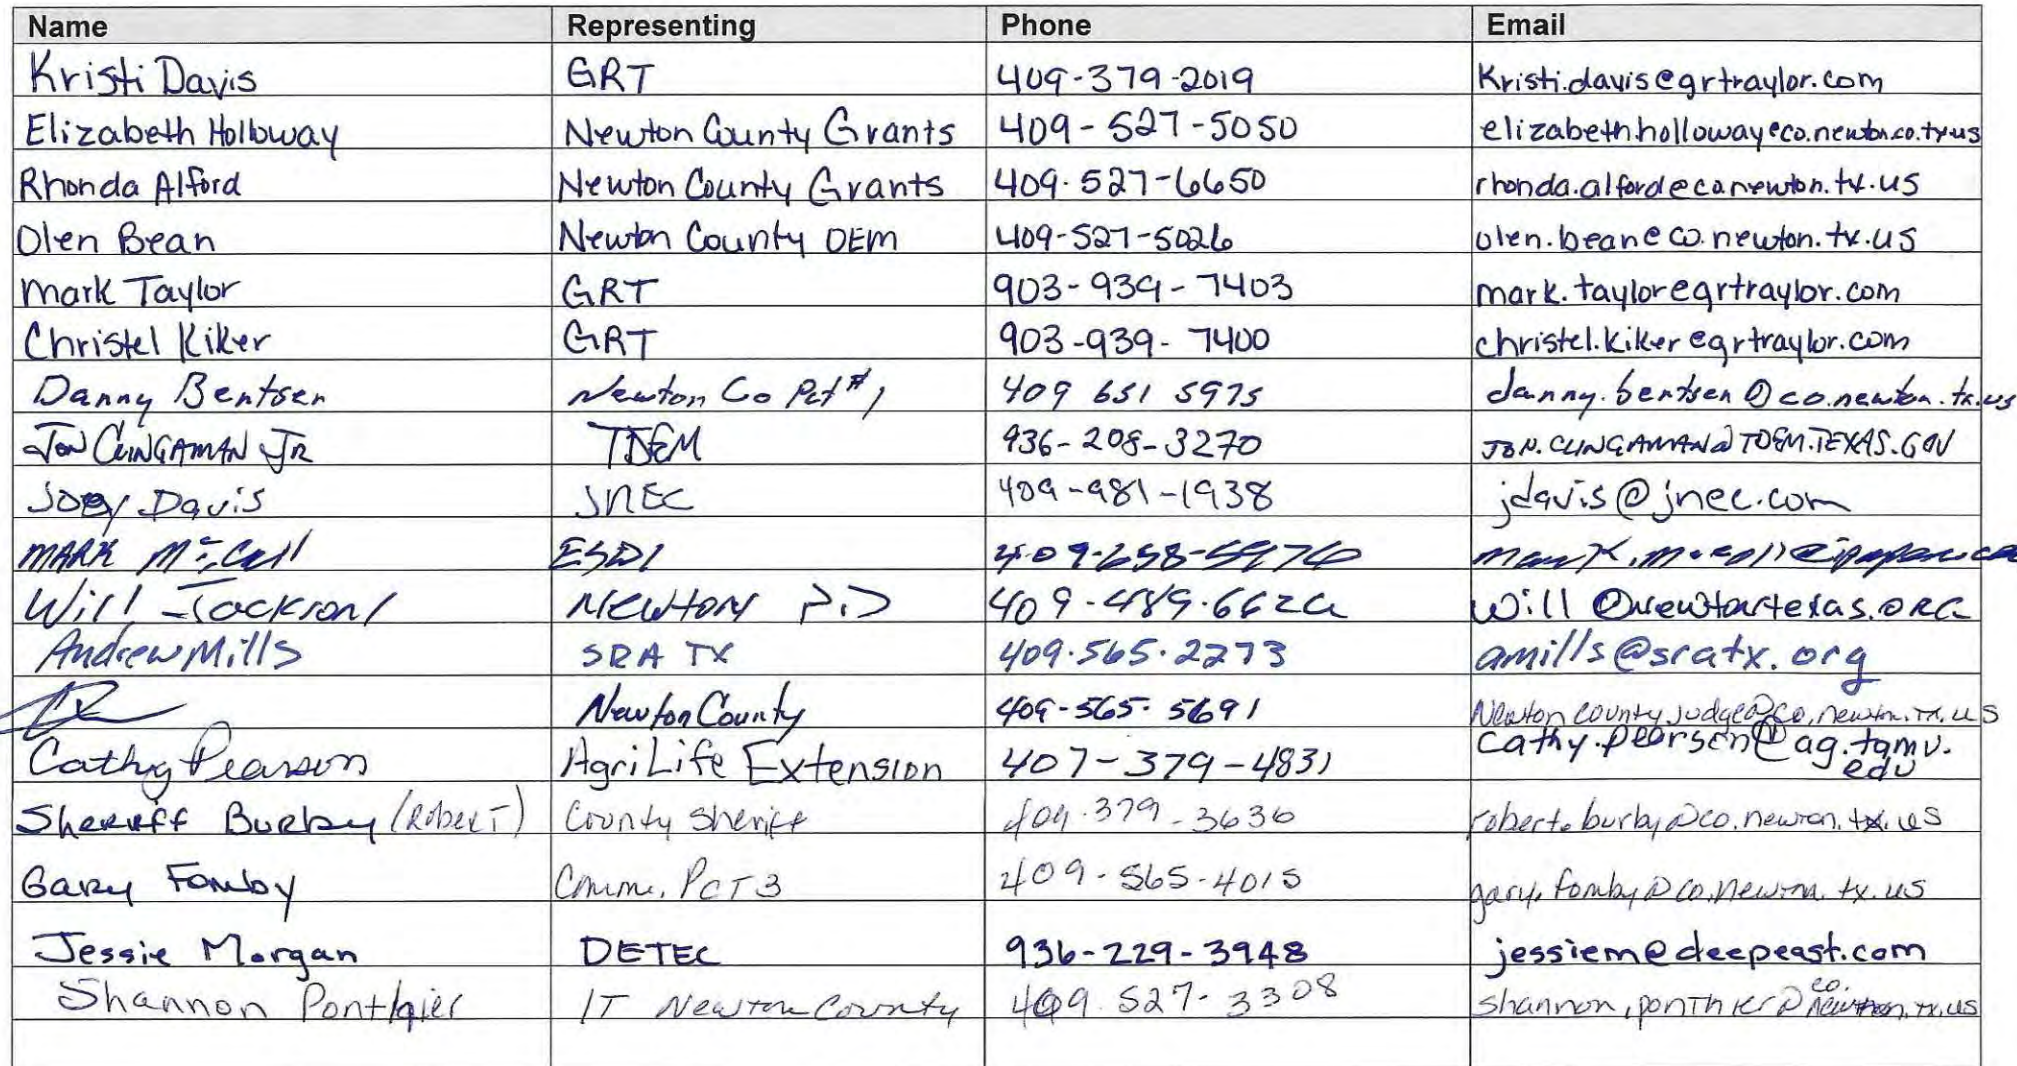 Name Representing Phone Email
Kristi Davis GRT 409-379-2019 Kristi.davis@grtraylor.com
Elizabeth Holloway Newton County Grants 409-527-5050 elizabeth.holloway@co.newton.co.tx.us
Rhonda Alford Newton County Grants 409.527-6650 rhonda.alford@co.newton.tx.us
Olen Bean Newton County OEM 409-527-5026 olen.bean@co.newton.tx.us
Mark Taylor GRT 903-939-7403 mark.taylor@grtraylor.com
Christel Kiker GRT 903-939-7400 christel.kiker@grtraylor.com
Danny Bentsen Newton Co Pct #1 409 651 5975 danny.bentsen@co.newton.tx.us
Jon Clingaman Jr TDEM 936-208-3270 JON.CLINGAMAN@TDEM.TEXAS.GOV
Joey Davis JNEC 409-981-1938 jdavis@jnec.com
MARK McCall ESD1
Will Jackson NEWTON P.D 409-489-662 will@newtontexas.ORG
Andrew Mills SRA TX 409.565.2273 amills@sratx.org
Newton County 409-565-5691 Newton county.judge@co.newton.tx.us
Cathy Pearson AgriLife Extension 407-379-4831 cathy.pearson@ag.tamu.
edu
Sheriff Burby (Robert) County Sheriff 409.379-3636 robert.burby@co.newton.tx.us
Gary Fomby Comm. Pct 3 409-565-4015 gary.fomby@co.newton.tx.us
Jessie Morgan DETEC 936-229-3948 jessiem@deepeast.com
Shannon Ponthier IT Newton County 409.527-3308 shannon.ponthier@co.newton.tx.us